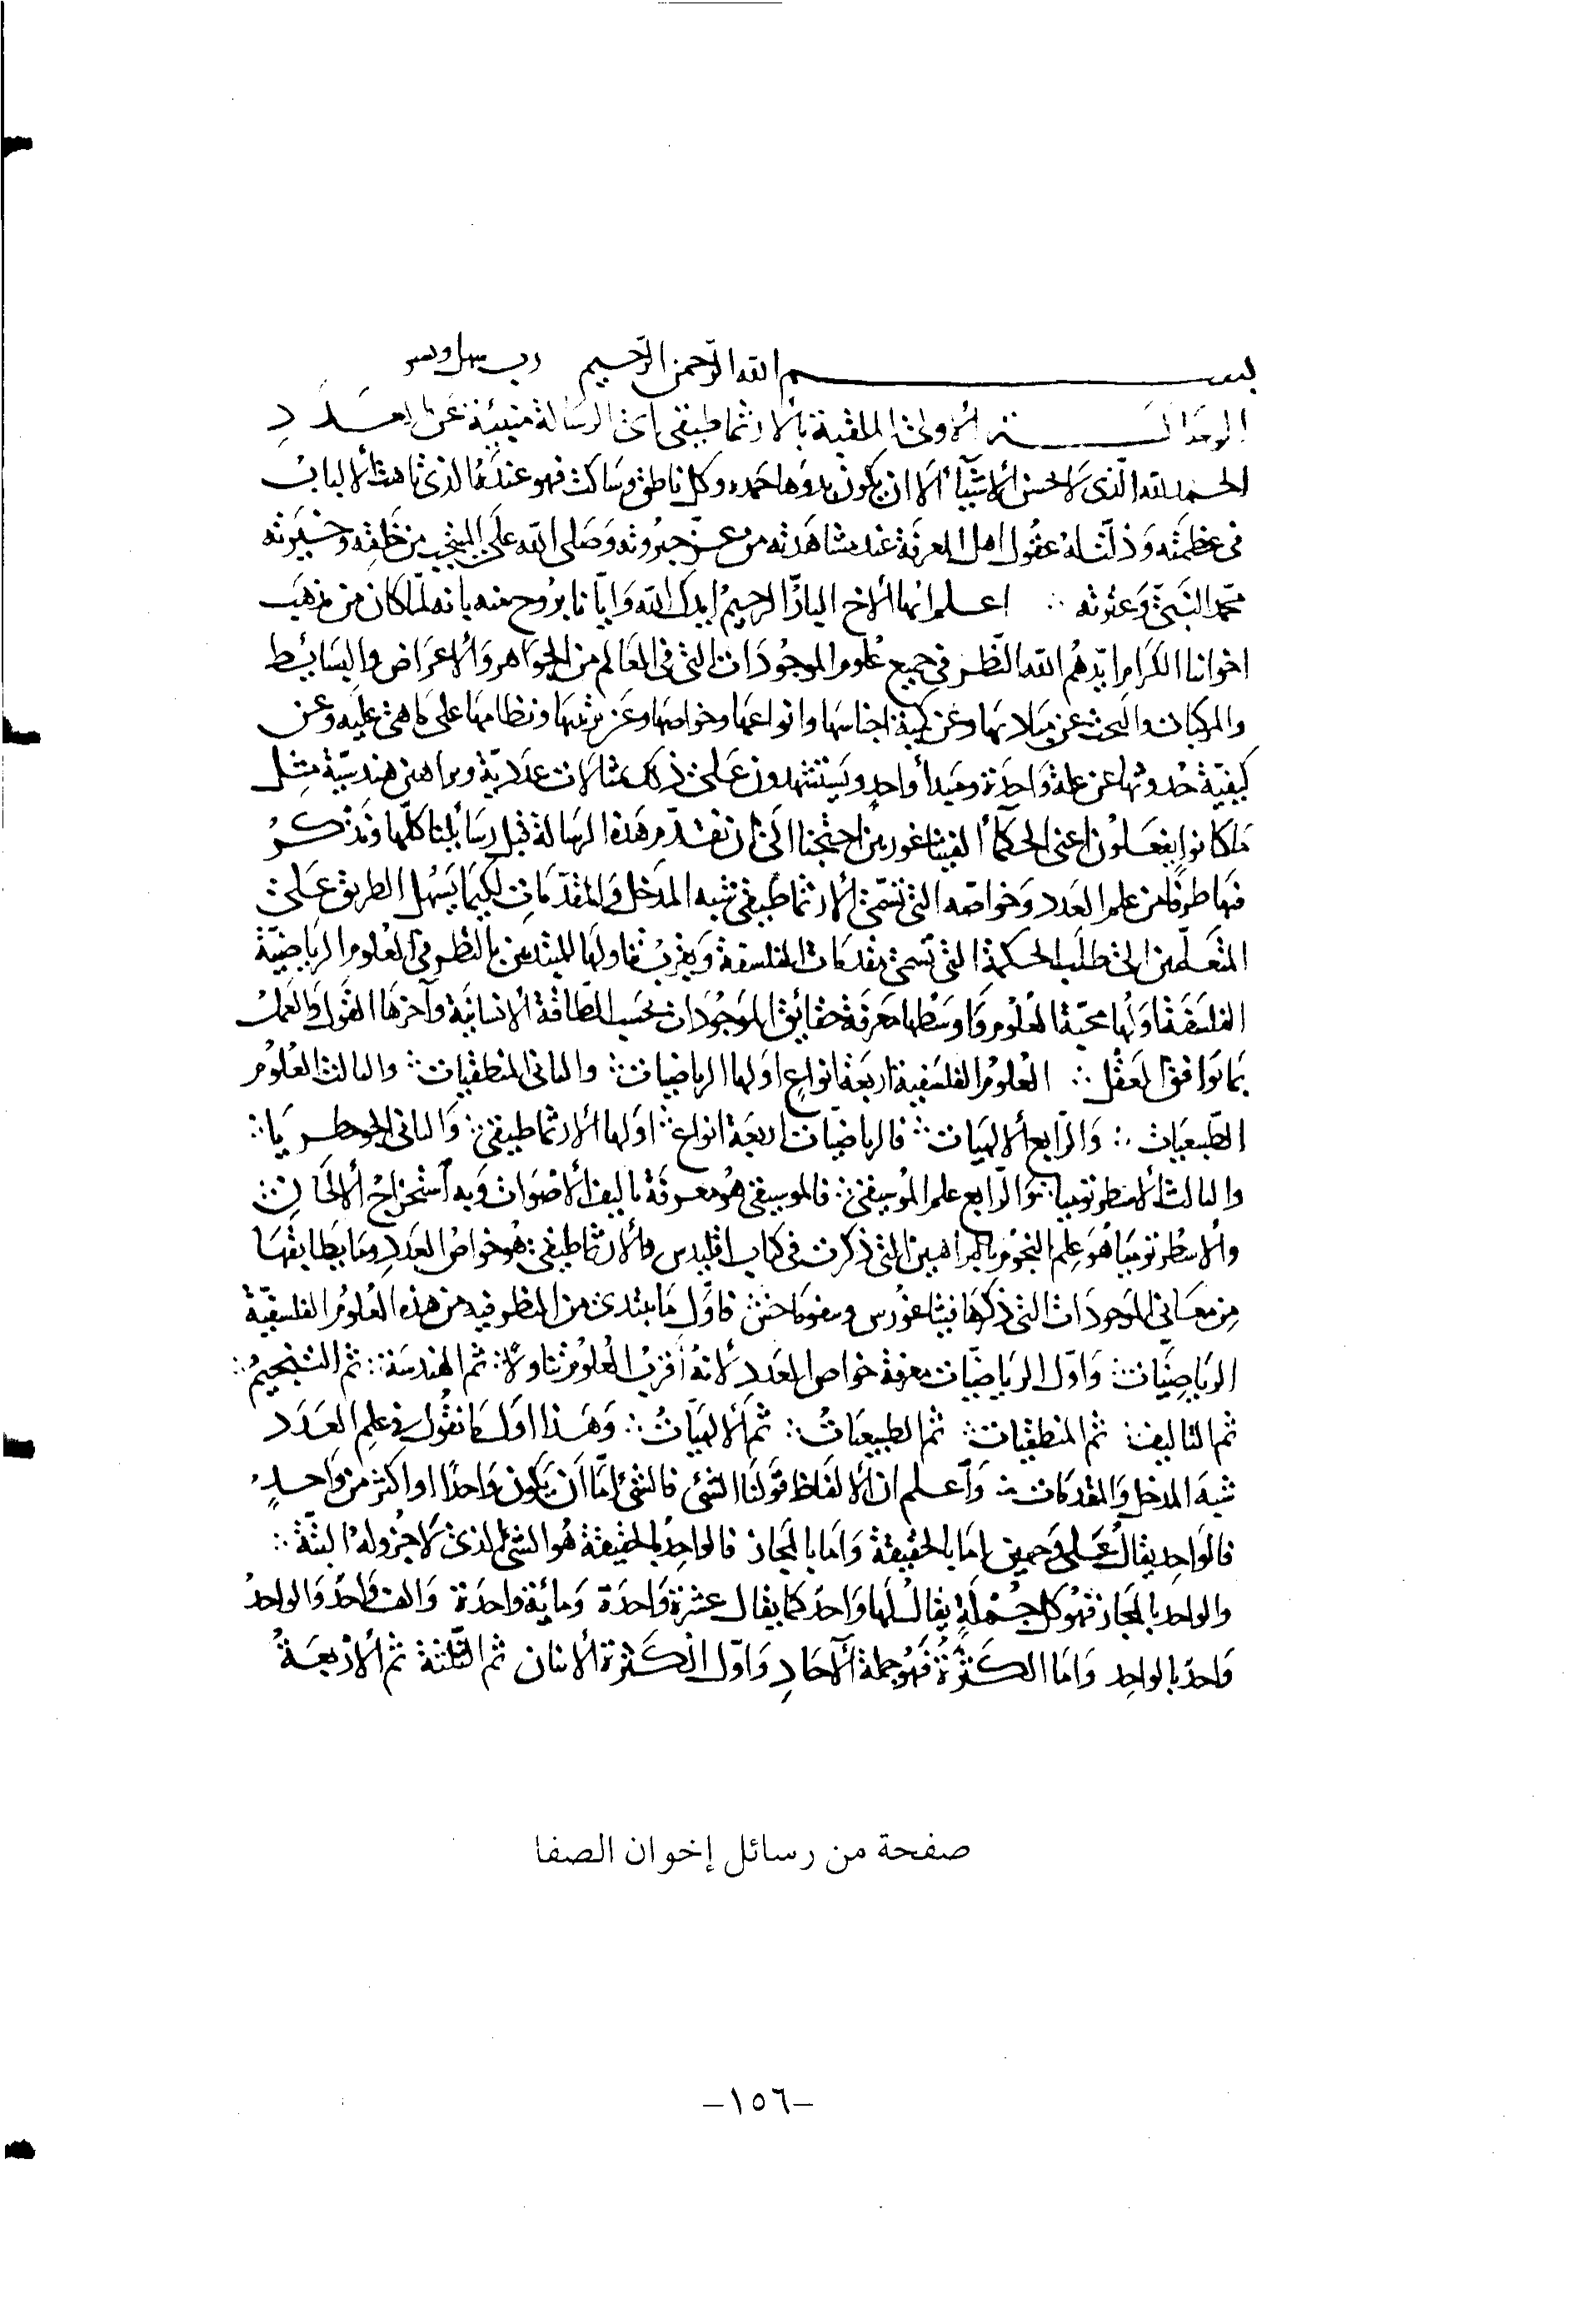 بسم الله الرحمن الرحيم رب سهل ويسر
الاولى الملقبة بالارثماطيقى اى الرسالة منبئة عن
الحمد لله الذى لا احسن الاشياء الا ان يكون بدوها حمده وكل ناطق وساكت فهو عند الذى تاهت الالباب
فى عظمته وذلت له عقول اهل المعرفة عند مشاهدته من عز جبروته وصلى الله على المنتجب من خلقه وخيرته
محمد النبى وعترته ∴ اعلم ايها الاخ البار الرحيم ايدك الله وايانا بروح منه بانه لما كان من مذهب
اخواننا الكرام ايدهم الله النظر فى جميع علوم الموجودات التى فى العالم من الجواهر والاعراض والبسايط
والمركبات والبحث عن مباديها وعن كمية اجناسها وانواعها وخواصها وعن ترتيبها ونظامها على ما هى عليه وعن
كيفية حدوثها عن علة واحدة ومبدأ واحد ويستشهدون على ذلك بمثالات عددية وبراهين هندسية مثل
ما كانوا يفعلون اعنى الحكماء الفيثاغوريين احتجنا الى ان نقدم هذه الرسالة قبل رسائلنا كلها ونذكر
فيها طرفا من علم العدد وخواصه التى تسمى الارثماطيقى شبه المدخل والمقدمات لكيما يسهل الطريق على
المتعلمين الى طلب الحكمة التى تسمى مقدمات الفلسفة ويقرب تناولها للمبتدئين بالنظر فى العلوم الرياضية
الفلسفة اولها محبة العلوم واوسطها معرفة حقائق الموجودات بحسب الطاقة الانسانية وآخرها القول والعمل
بما توافق العقل ∴ العلوم الفلسفية اربعة انواع اولها الرياضيات ∴ والثانى المنطقيات ∴ والثالث العلوم
الطبيعيات ∴ والرابع الالهيات ∴ فالرياضيات اربعة انواع ∴ اولها الارثماطيقى ∴ والثانى الجومطريا ∴
والثالث الاسطرنوميا ∴ والرابع علم الموسيقى ∴ فالموسيقى هو معرفة تاليف الاصوات وبه استخراج الالحان ∴
والاسطرنوميا هو علم النجوم بالبراهين التى ذكرت فى كتاب اقليدس والارثماطيقى هو خواص العدد وما يطابقها
من معانى الموجودات التى ذكرها فيثاغورس ونيقوماخس فاول ما يبتدئ من النظر فيه من هذه العلوم الفلسفية
الرياضيات ∴ واول الرياضيات معرفة خواص العدد لانه اقرب العلوم تناولا ∴ ثم الهندسة ∴ ثم التنجيم ∴
ثم التاليف ∴ ثم المنطقيات ∴ ثم الطبيعيات ∴ ثم الالهيات ∴ وهذا اول ما نقول فى علم العدد
شبه المدخل والمقدمات ∴ واعلم ان الالفاظ قولنا الشئ فالشئ اما ان يكون واحدا او اكثر من واحد
فالواحد يقال على وجهين اما بالحقيقة واما بالمجاز فالواحد بالحقيقة هو الشئ الذى لا جزو له البتة ∴
والواحد بالمجاز فهو كل جملة يقال لها واحد كما يقال عشرة واحدة ومائة واحدة والف واحد والواحد
واحد بالواحد واما الكثرة فهو جملة الآحاد واول الكثرة الاثنان ثم الثلثة ثم الاربعة
صفحة من رسائل إخوان الصفا
-١٥٦-